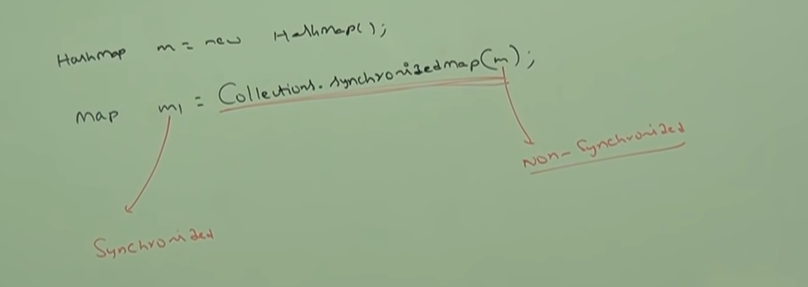 HashMap m = new HashMap();
Map m1 = Collections.synchronizedmap(m);
Non-Synchronized
Synchronized